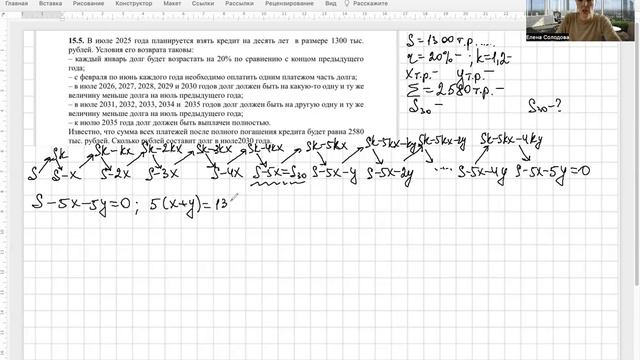 Вставка Рисование Конструктор Макет Ссылки Рассылки Рецензирование Вид Расскажите
Елена Солодова
15.5. В июле 2025 года планируется взять кредит на десять лет в размере 1300 тыс.
рублей. Условия его возврата таковы:
– каждый январь долг будет возрастать на 20% по сравнению с концом предыдущего
года;
– с февраля по июнь каждого года необходимо оплатить одним платежом часть долга;
– в июле 2026, 2027, 2028, 2029 и 2030 годов долг должен быть на какую-то одну и ту же
величину меньше долга на июль предыдущего года;
– в июле 2031, 2032, 2033, 2034 и 2035 годов долг должен быть на другую одну и ту же
величину меньше долга на июль предыдущего года;
– к июлю 2035 года долг должен быть выплачен полностью.
Известно, что сумма всех платежей после полного погашения кредита будет равна 2580
тыс. рублей. Сколько рублей составит долг в июле2030 году.
S=1300 т.р.
r=20% - ; k=1,2-
x т.р.- y т.р.-
Σ=2580 т.р.-
S30 - S30-?
Sk Sk-kx Sk-2kx Sk-3kx Sk-4kx Sk-5kx Sk-5kx-ky Sk-5kx-4ky
S S-x S-2x S-3x S-4x S-5x=S30 S-5x-y S-5x-2y .... S-5x-4y S-5x-5y=0
S-5x-5y=0; 5(x+y)=13